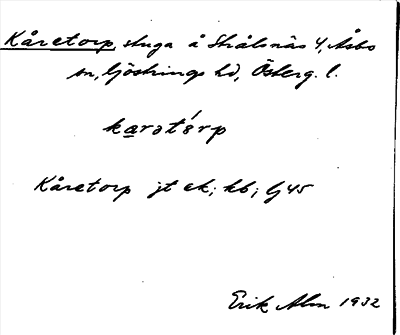 Kåretorp, stuga å Strålsnäs 4, Åsbo
sn, Göstrings hd, Österg. l.
karətórp
Kåretorp jt ek; kb; Lj 45
Erik Alm 1932